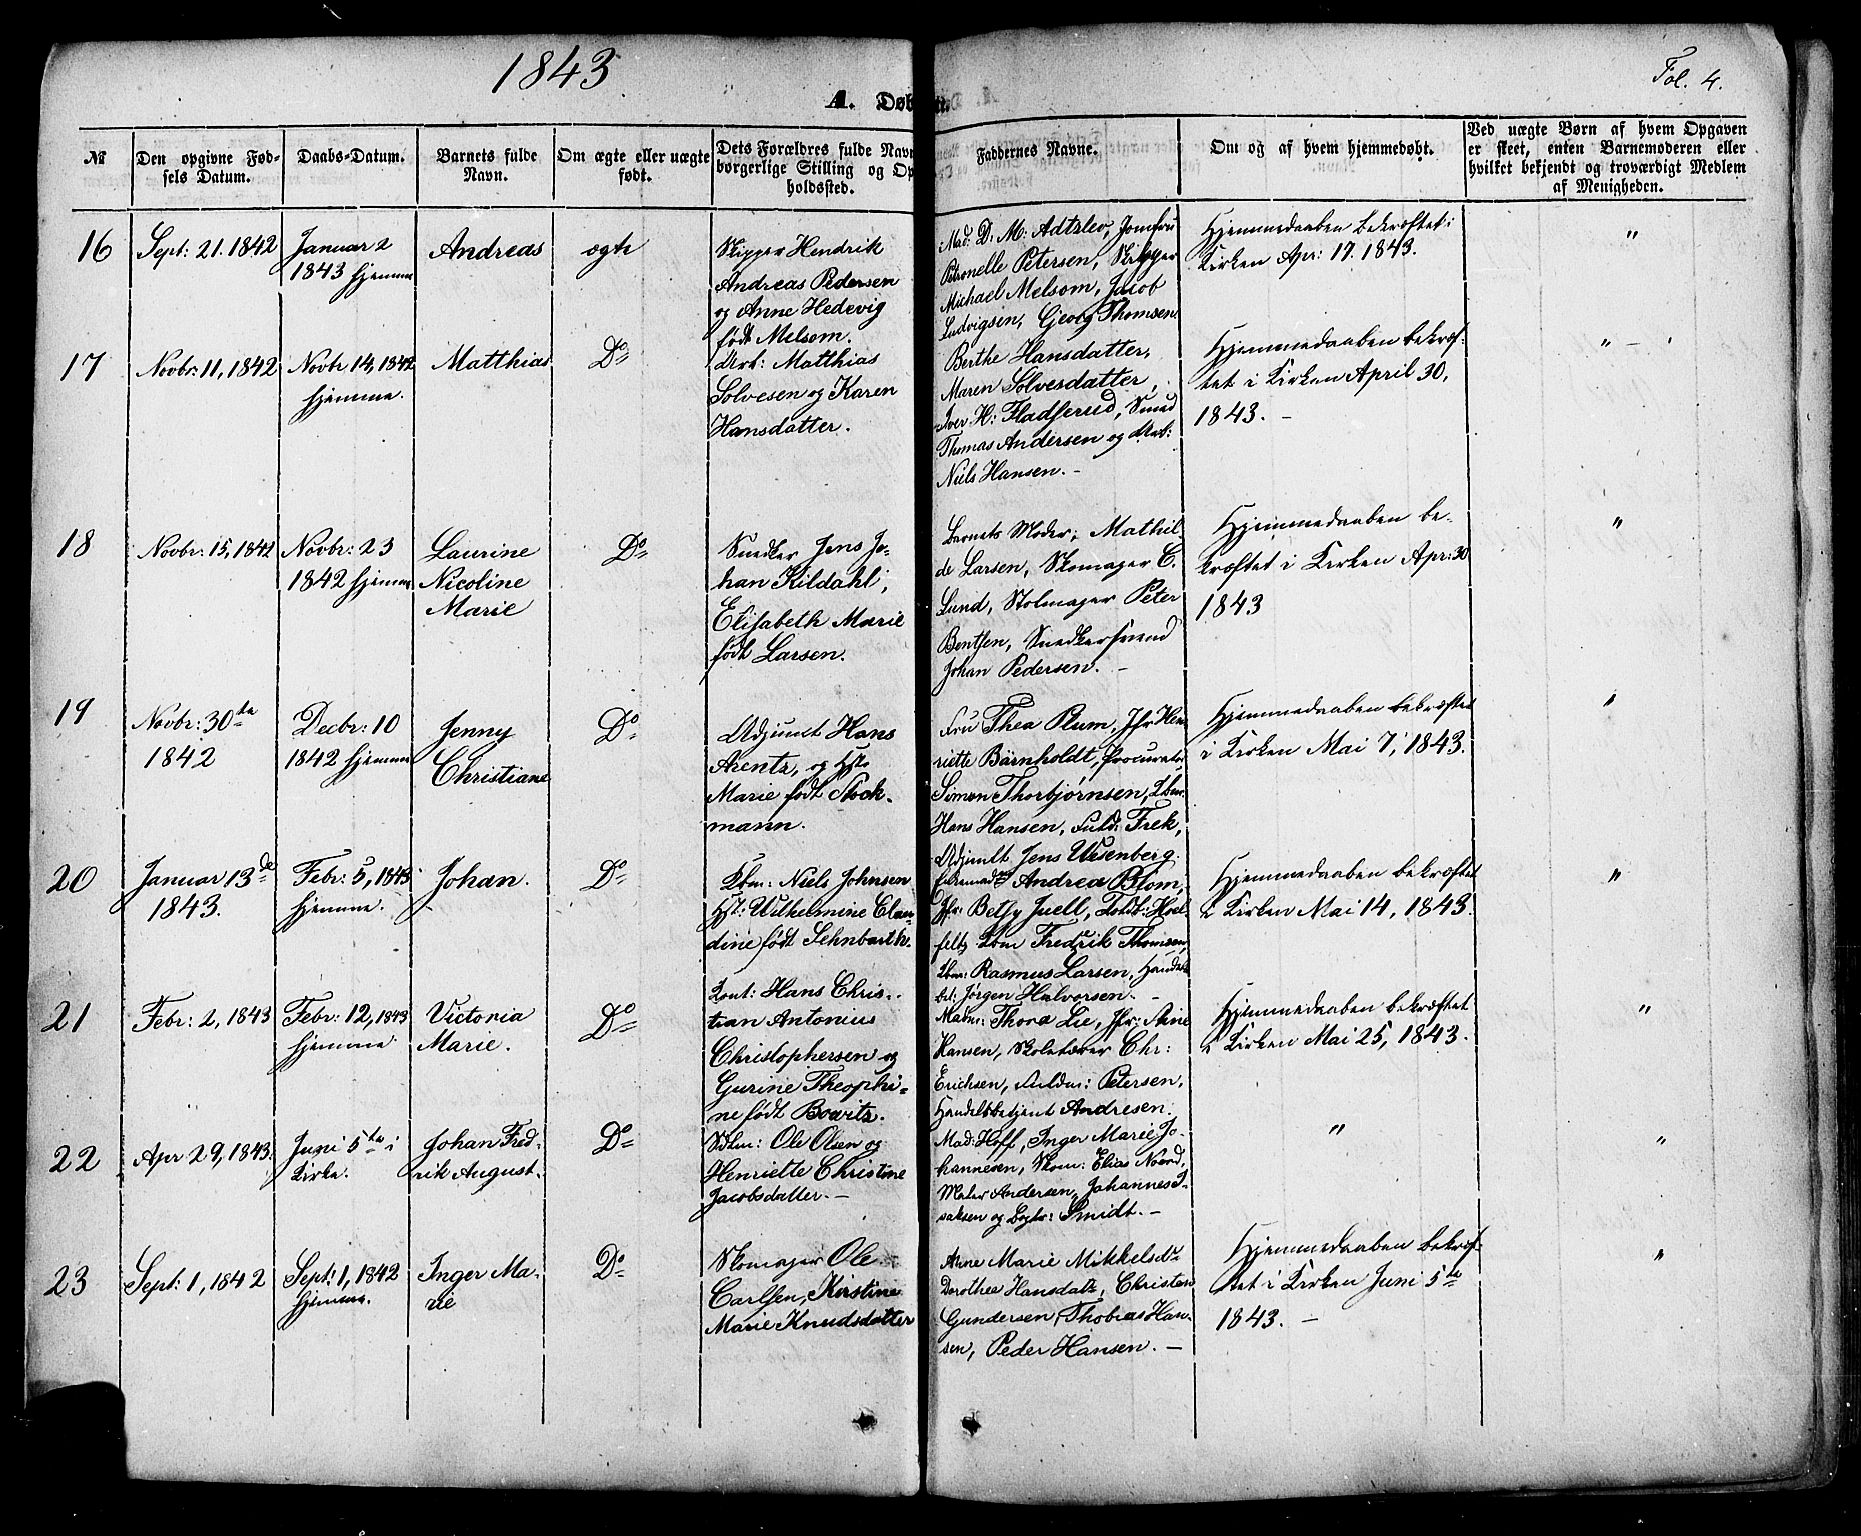 1843
Fol. 4.
A. Døbte.
№
Den opgivne Fød-
sels Datum.
Daabs-Datum.
Barnets fulde
Navn.
Om ægte eller uægte
født.
Dets Forældres fulde Navn
borgerlige Stilling og Op
holdssted.
Faddernes Navne.
Om og af hvem hjemmedøbt.
Ved uægte Børn af hvem Opgaven
er skeet, enten Barnemoderen eller
hvilket bekjendt og troværdigt Medlem
af Menigheden.
16
Sept: 21. 1842
Januar 2
1843 hjemme
Andreas
ægte
Skipper Hendrik
Andreas Pedersen
og Anne Hedevig
født Melsom.
Mad: D: M: Adtzlev, Jomfru
Petronelle Petersen, Skipper
Michael Melsom, Jacob
Ludvigsen, Gjeorg Thomsen
Hjemmedaaben bekræftet i
Kirken Apr: 17. 1843.
"
17
Novbr: 11, 1842
Novbr 14, 1842
hjemme.
Matthias
Do
Arb: Matthias
Sølvesen og Karen
Hansdatter.
Berthe Hansdatter,
Maren Sølvesdatter,
Iver H: Fladserud, Smed
Thomas Andersen og Mat:
Niels Hansen. -
Hjemmedaaben bekræf-
tet i Kirken April 30,
1843. -
" - "
18
Novbr: 15, 1842
Novbr: 23
1842 hjemme
Laurine
Nicoline
Marie
Do
Snedker Jens Jo-
han Kildahl,
Elisabeth Marie
født Larsen.
Barnets Moder, Mathil-
de Larsen, Skomager C.
Lund, Stolmager Peter
Bentsen, Snedkersvend
Johan Pedersen. -
Hjemmedaaben be-
kræftet i Kirken Apr: 30
1843
"
19
Novbr: 30te
1842
Decbr: 10
1842 hjemme
Jenny
Christiane
Do
Adjunct Hans
Arentz, og Hst:
Marie født Stock-
mann.
Fru Thea Plum, Jfr Hen
riette Bärnholdt, Procurator
Simon Thorbjørnsen, Kbm:
Hans Hansen, Fuld: Frek,
Adjunct Jens Wesenberg.
Hjemmedaaben bekræftet
i Kirken Mai 7, 1843.
"
20
Januar 13de
1843.
Febr: 5, 1843
hjemme.
Johan.
Do
Kbm: Niels Johnsen
Hst: Wilhelmine Clau
dine født Sehnbarth.
Andrea Blom,
Jfr: Betsy Juell, Toldb: Hoel
feldt Kbm Fredrik Thomsen,
Kbm: Rasmus Larsen, Handels
bet: Jörgen Halvorsen. -
Hjemmedaaben bekræftet
i Kirken Mai 14, 1843.
"
21
Febr: 2, 1843
Febr: 12, 1843
hjemme
Victoria
Marie.
Do
Kont: Hans Chris-
tian Antonius
Christophersen og
Gurine Theophi-
ne født Bowitz.
Madm: Thora Lie, Jfr: Stine
Hansen, Skolelærer Chr:
Erichsen, Fuldm: Petersen,
Handelsbetjent Andresen.
Hjemmedaaben bekræftet
i Kirken Mai 25, 1843.
"
22
Apr 29, 1843.
Juni 5te i
Kirke.
Johan Fred-
rik August.
Do
Sdlm: Ole Olsen og
Henriette Christine
Jacobsdatter. -
Mad: Hoff, Inger Marie Jo-
hannesen, Skom: Elias Noord,
Maler Andersen, Johannes I-
saksen og Bogtr: Smidt. -
"
"
23
Sept: 1, 1842
Sept: 1, 1842
hjemme.
Inger Ma-
rie
Do
Skomager Ole
Carlsen, Kirstine
Marie Knudsdatter
Anne Marie Mikkelsdtr
Dorothea Hansdatr, Christen
Gundersen, Thobias Han-
sen, Peder Hansen. -
Hjemmedaaben bekræf-
tet i Kirken Juni 5te
1843. -
"